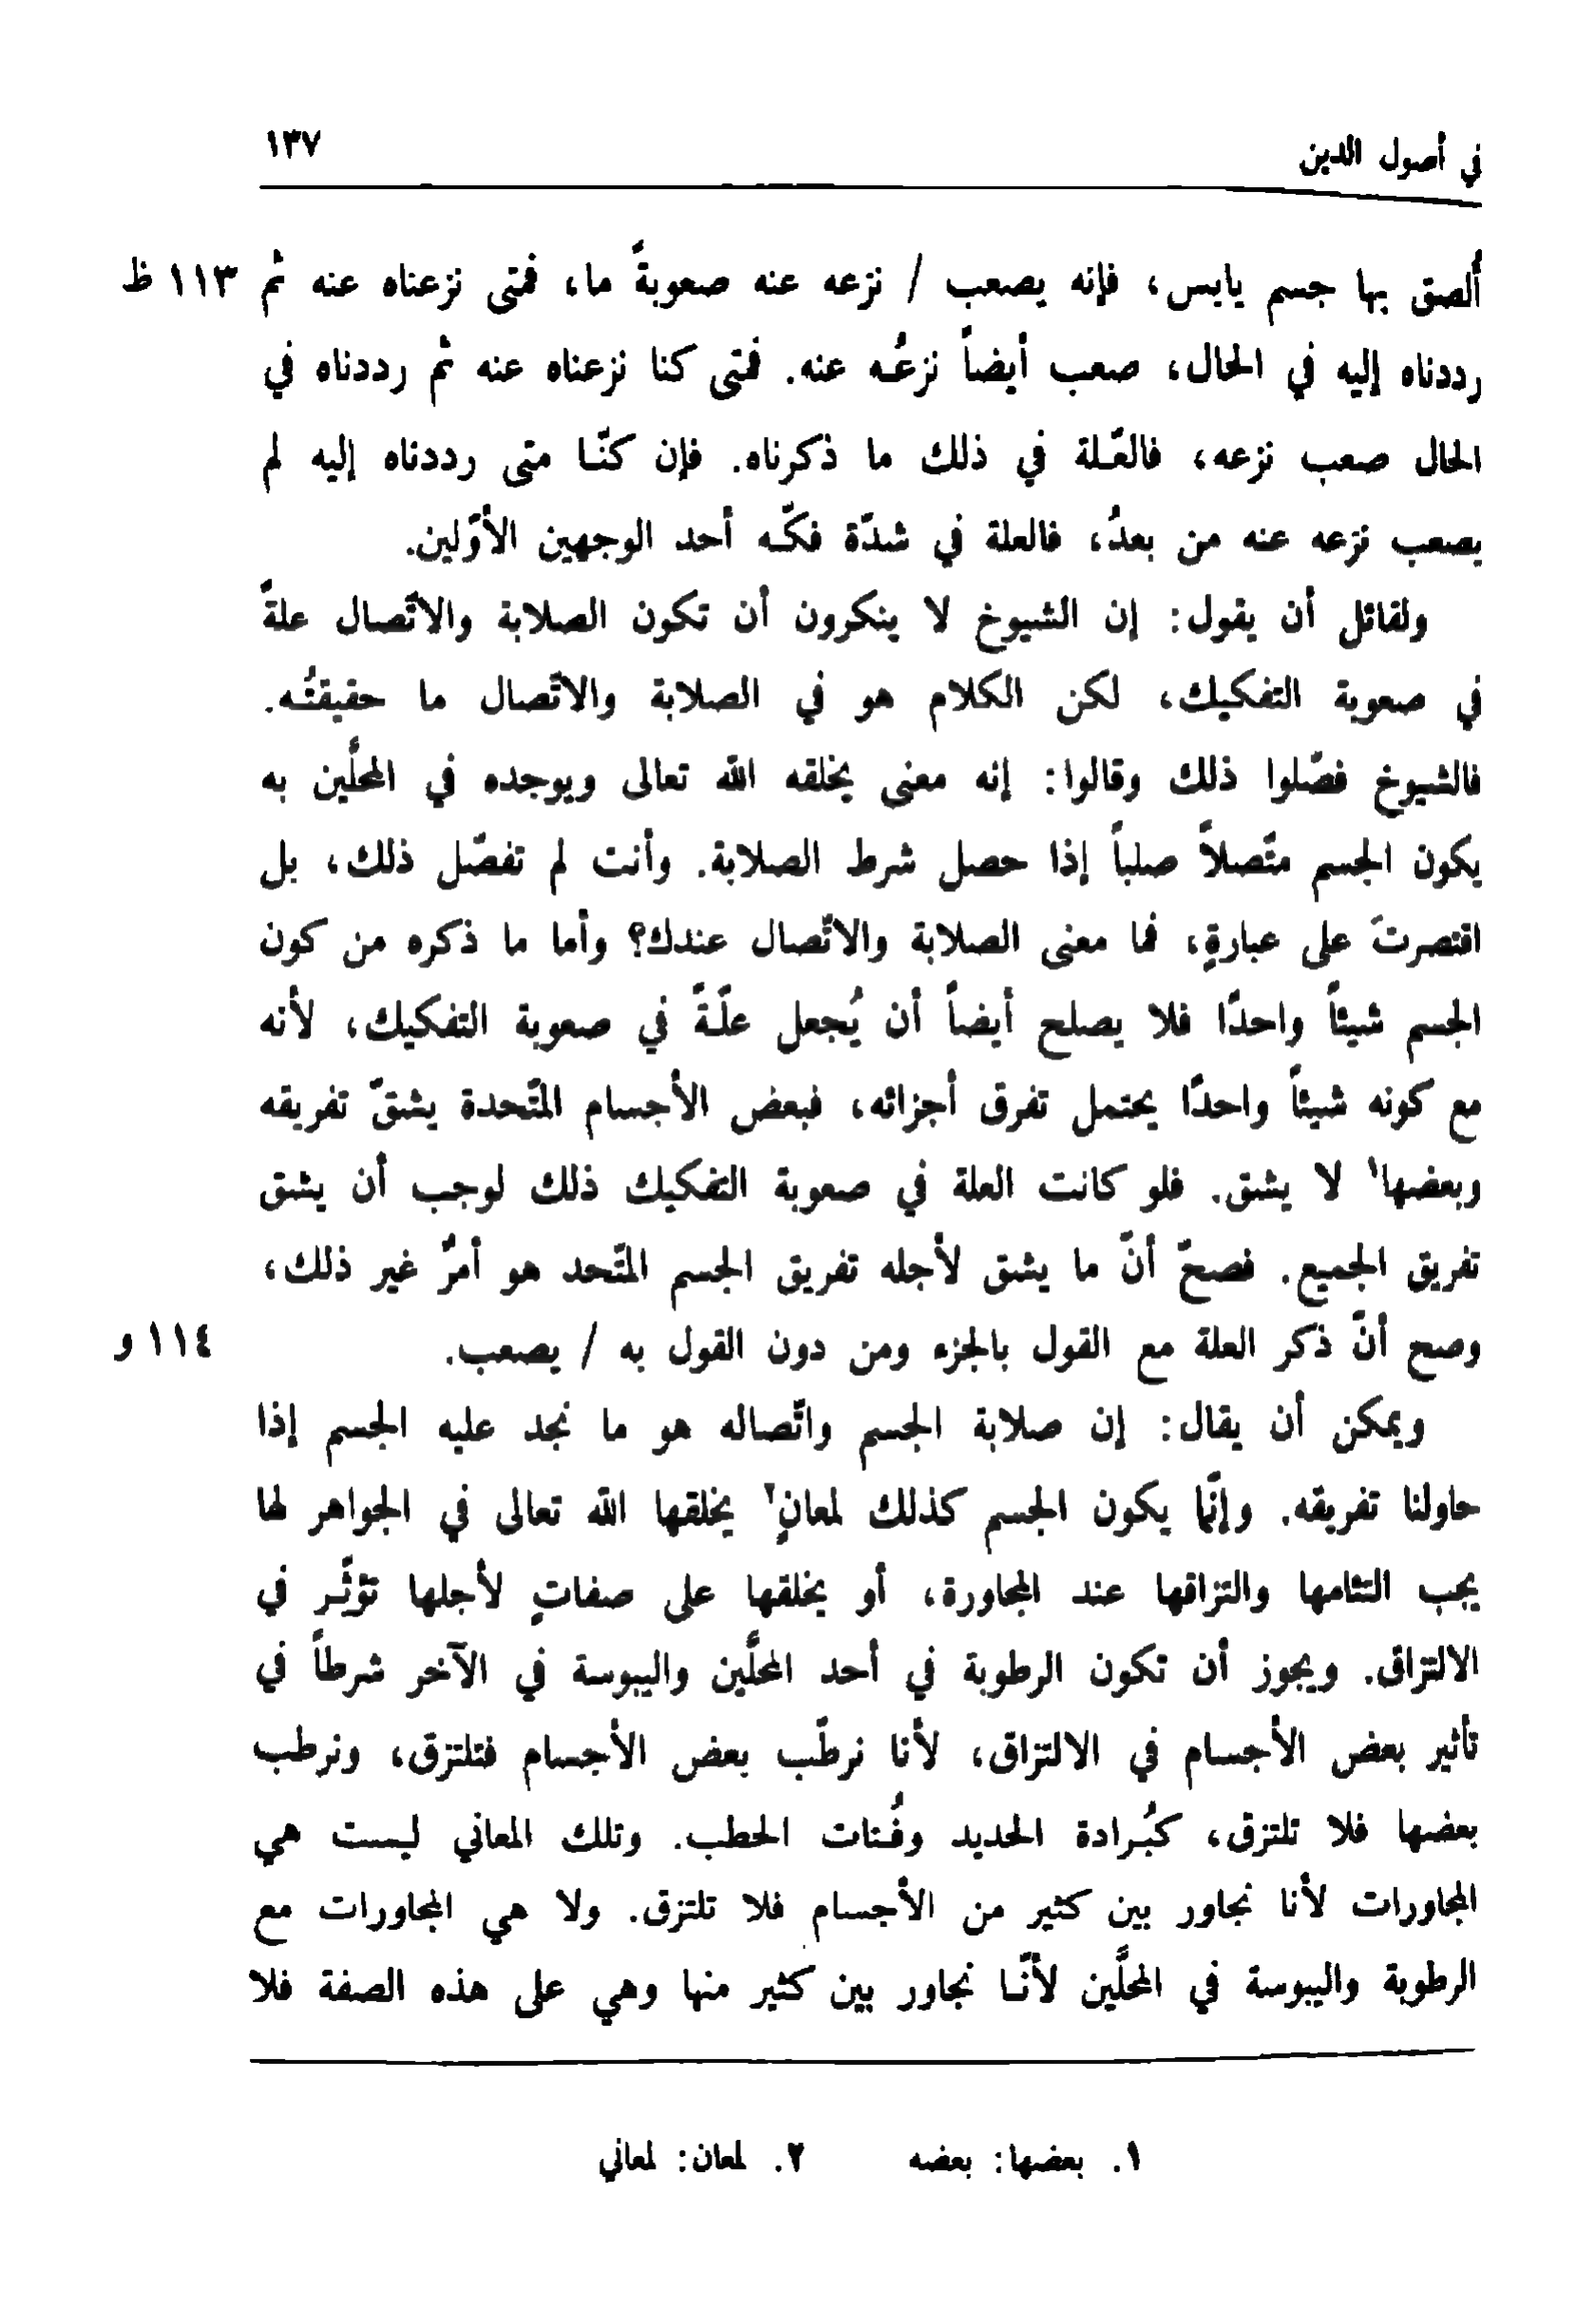 في أصول الدين ١٣٧
أُلصق بها جسم يابس، فإنه يصعب / نزعه عنه صعوبةً ما، فمتى نزعناه عنه ثم ١١٣ ظ
رددناه إليه في الحال، صعب أيضاً نزعُه عنه. فمتى كنا نزعناه عنه ثم رددناه في
الحال صعب نزعه، فالعّلة في ذلك ما ذكرناه. فإن كنّا متى رددناه إليه لم
يصعب نزعه عنه من بعدُ، فالعلة في شدّة فكّه أحد الوجهين الأوّلين.
ولقائل أن يقول: إن الشيوخ لا ينكرون أن تكون الصلابة والاتّصال علةً
في صعوبة التفكيك، لكن الكلام هو في الصلابة والاتّصال ما حقيقتُه.
فالشيوخ فصّلوا ذلك وقالوا: إنه معنى يخلقه الله تعالى ويوجده في المحلَّين به
يكون الجسم متّصلاً صلباً إذا حصل شرط الصلابة. وأنت لم تفصّل ذلك، بل
اقتصرتَ على عبارةٍ، فما معنى الصلابة والاتّصال عندك؟ وأما ما ذكره من كون
الجسم شيئاً واحدًا فلا يصلح أيضاً أن يُجعل علّةً في صعوبة التفكيك، لأنه
مع كونه شيئاً واحدًا يحتمل تفرق أجزائه، فبعض الأجسام المتّحدة يشقّ تفريقه
وبعضها١ لا يشق. فلو كانت العلة في صعوبة التفكيك ذلك لوجب أن يشق
تفريق الجميع. فصحّ أنّ ما يشق لأجله تفريق الجسم المتّحد هو أمرٌ غير ذلك،
وصح أنّ ذكر العلة مع القول بالجزء ومن دون القول به / يصعب. ١١٤ و
ويمكن أن يقال: إن صلابة الجسم واتّصاله هو ما نجد عليه الجسم إذا
حاولنا تفريقه. وإنّما يكون الجسم كذلك لمعانٍ٢ يخلقها الله تعالى في الجواهر لها
يجب التئامها والتزاقها عند المجاورة، أو يخلقها على صفاتٍ لأجلها تؤثّر في
الالتزاق. ويجوز أن تكون الرطوبة في أحد المحلَّين واليبوسة في الآخر شرطاً في
تأثير بعض الأجسام في الالتزاق، لأنا نرطّب بعض الأجسام فتلتزق، ونرطب
بعضها فلا تلتزق، كبُرادة الحديد وفُتات الحطب. وتلك المعاني ليست هي
المجاورات لأنا نجاور بين كثير من الأجسام فلا تلتزق. ولا هي المجاورات مع
الرطوبة واليبوسة في المحلَّين لأنّا نجاور بين كثير منها وهي على هذه الصفة فلا
١. بعضها: بعضه ٢. لمعان: لمعاني